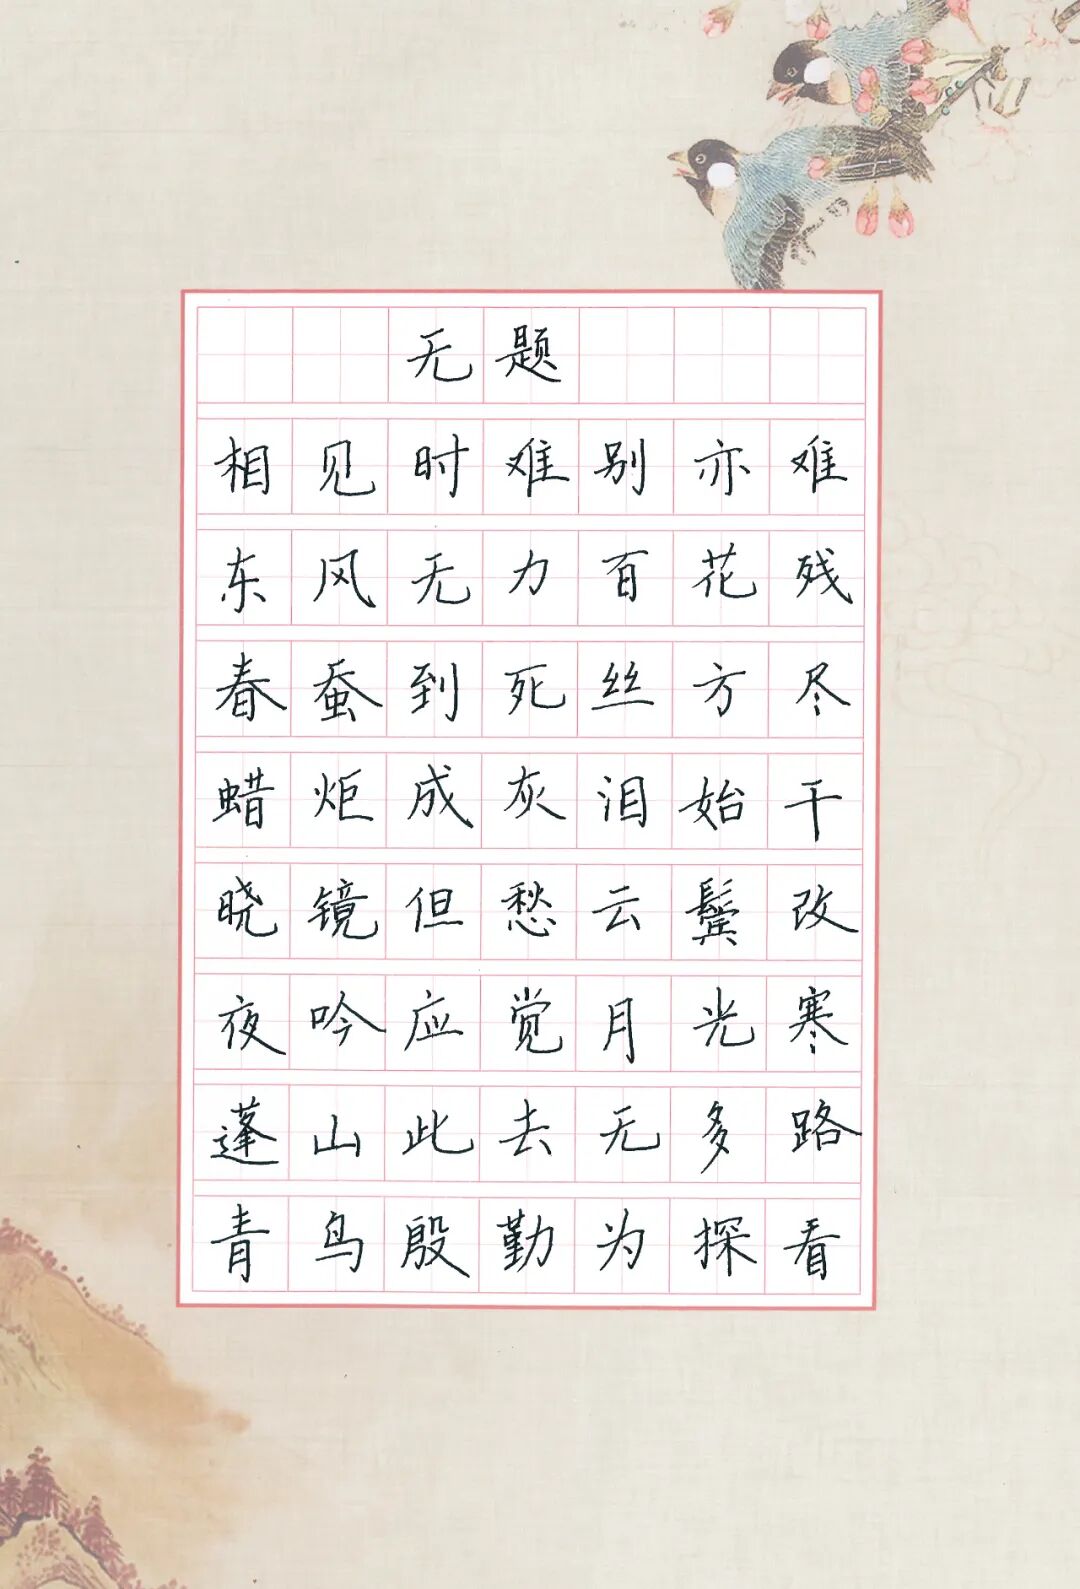 无题
相见时难别亦难
东风无力百花残
春蚕到死丝方尽
蜡炬成灰泪始干
晓镜但愁云鬓改
夜吟应觉月光寒
蓬山此去无多路
青鸟殷勤为探看